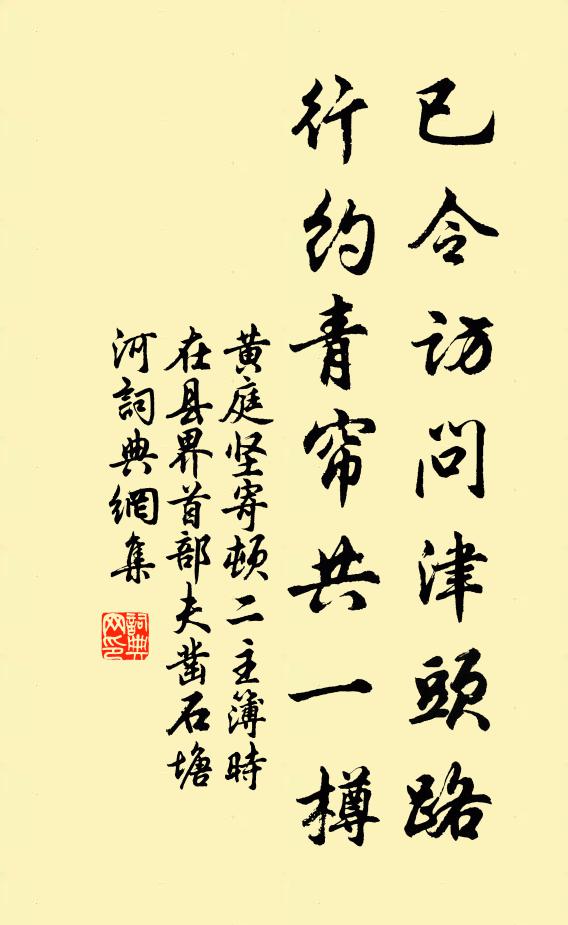 已令访问津頭路
行约青帘共一樽
黄庭坚寄顿二主簿時
在县界首部夫凿石塘
河詞典網集
詞典网印